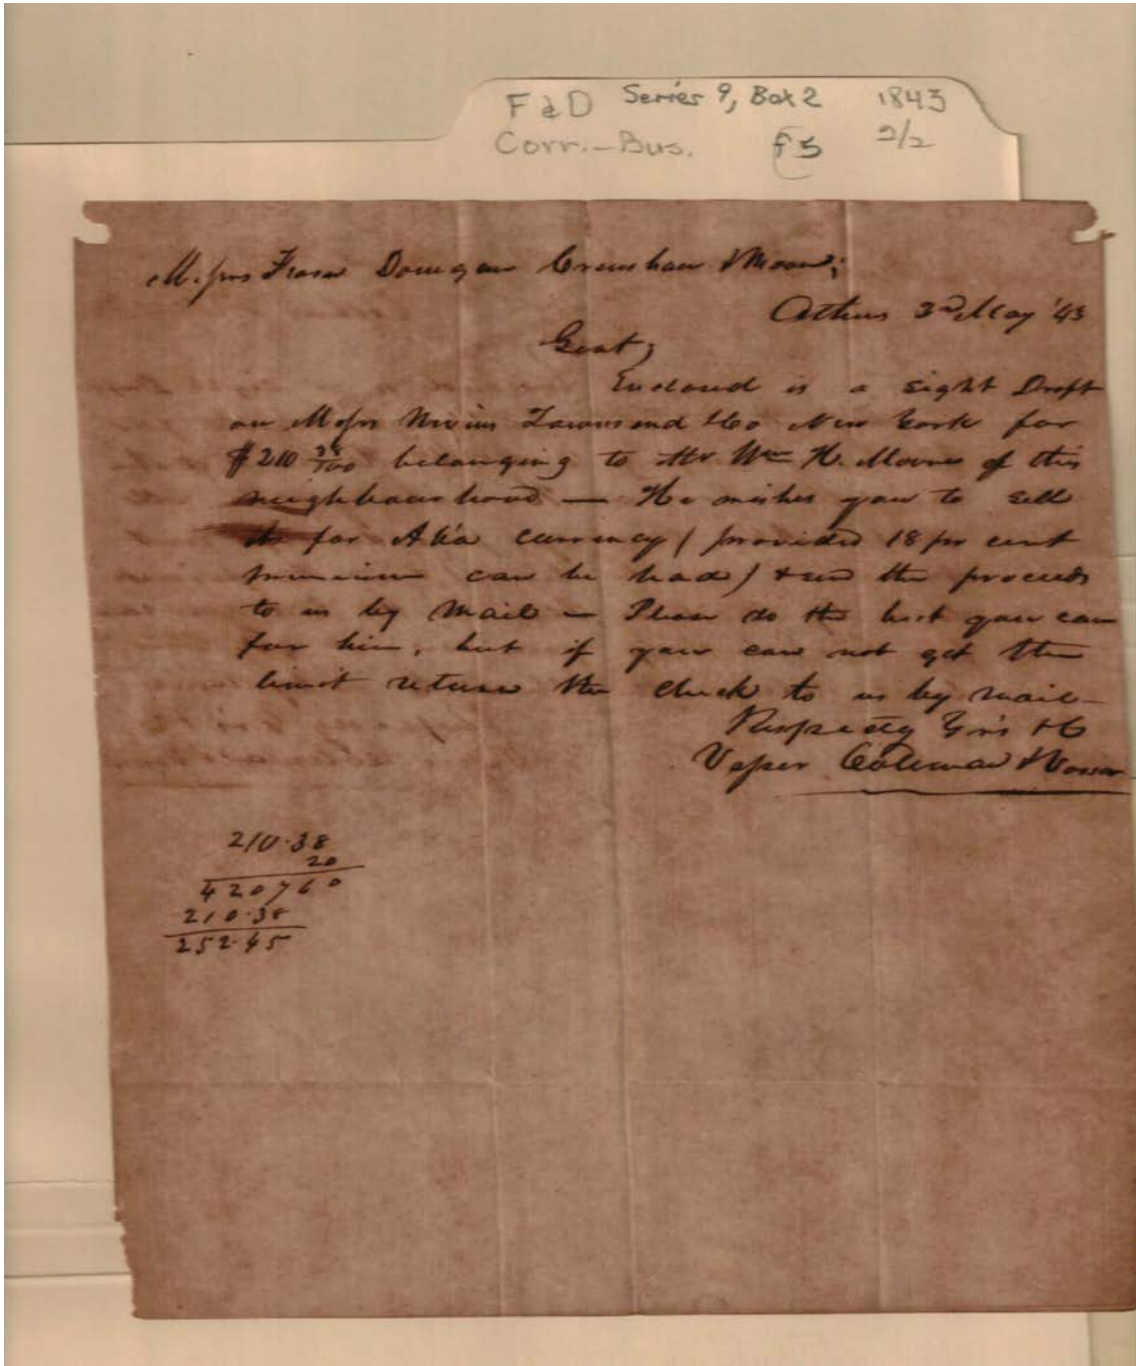 F & D Series 9, Box 2 1843
Corr.-Bus. f5 2/2
Messrs Fearn Donegan Crenshaw & Moore;
Athens 3rd May '43
Gent;
Enclosed is a sight Draft
on Messrs Nevins Townsend & Co New York for
$210 38/100 belonging to Mr Wm H. Moore of this
neighbourhood — He wishes you to sell
it for Al'a currency (provided 18 per cent
premium can be had) & send the proceeds
to us by Mail — Please do the best you can
for him, but if you can not get the
limit return the check to us by mail —
Respectfy Yrs &C
Vasser Coleman &
210.38
20
420760
210.38
252.45